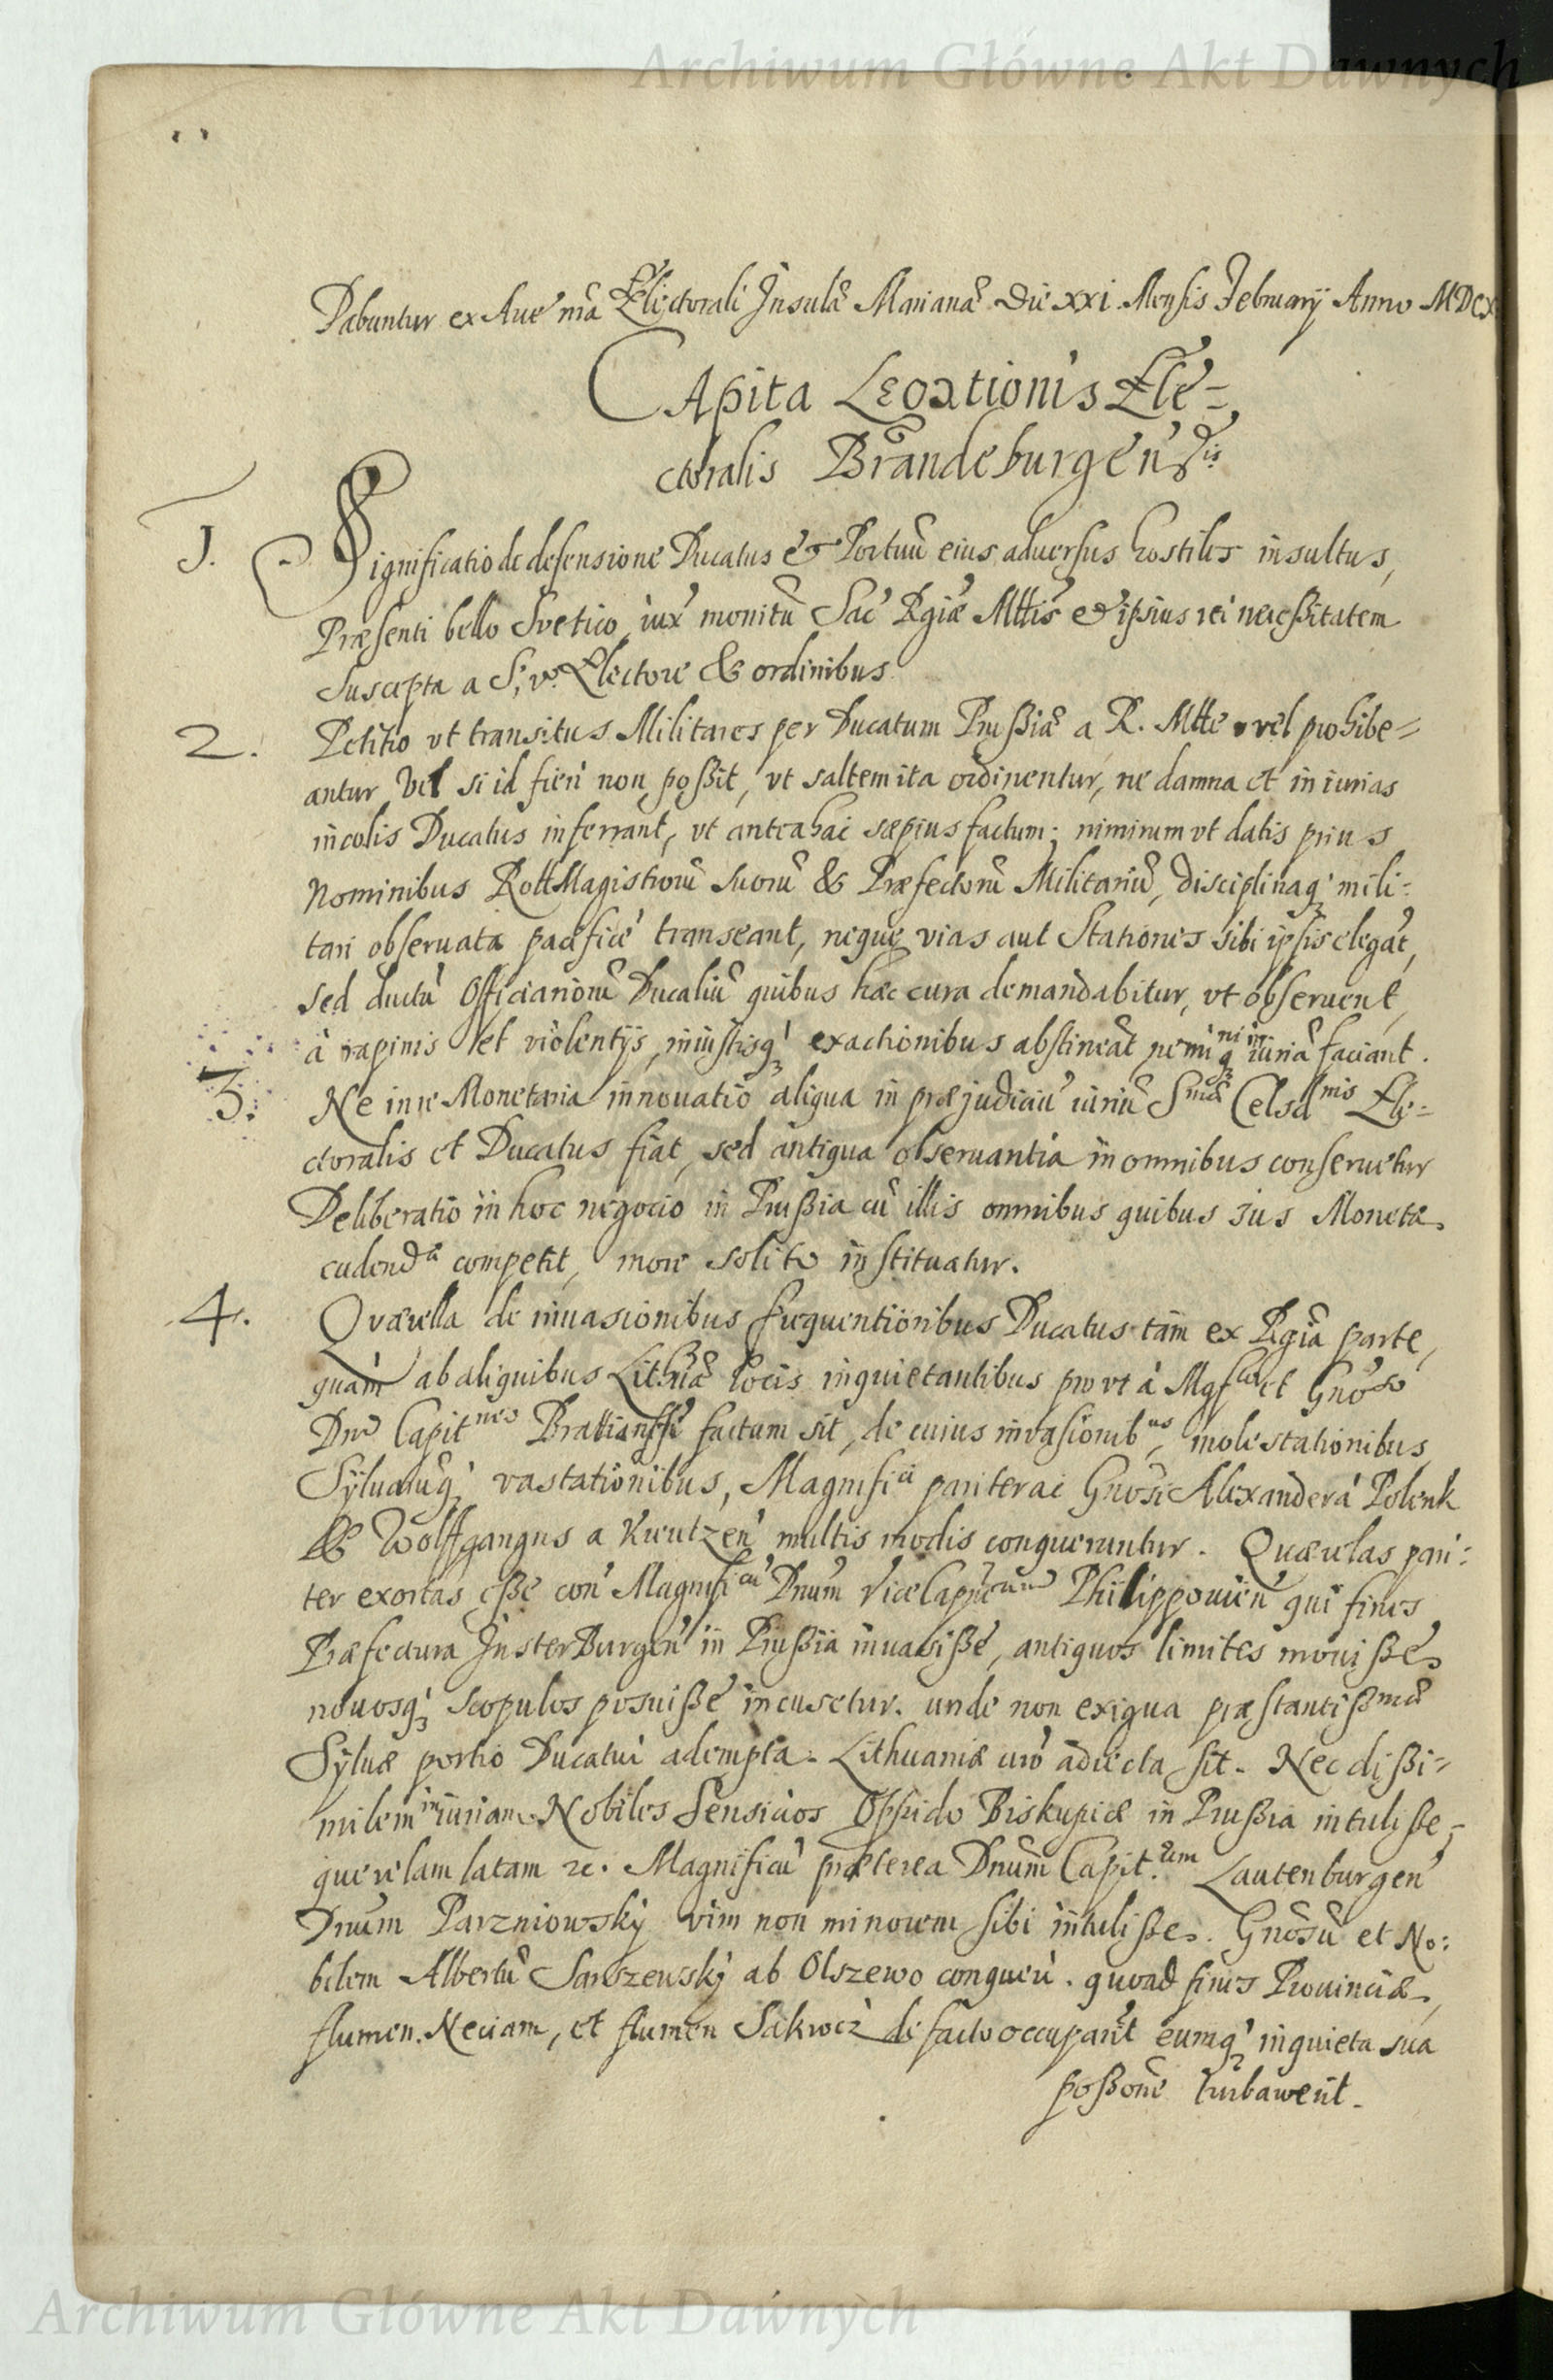 Archiwum Główne Akt Dawnych
Dabantur ex Aue mā Electorali Insulā Marianā Die xxi Mensis February Anno MDCX
CApita Legationis Ele-
ctoralis Brandeburgensis
1. Significatio de defensione Ducatus & Portuū eius aduersus hostiles insultus,
Præsenti bello Svetico iux monitū Sac Rgiæ Mttis & ipsius rei necessitatem
Suscepta a S. v. Electore & ordinibus
2. Petitio vt transitus Militares per Ducatum Prussiæ a R. Mtte vel prohibe=
antur Vel si id fieri non possit, vt saltem ita ordinentur, ne damna et iniurias
incolis Ducatus inferrant, vt anteahac sæpius factum; nimirum vt datis prius
Nominibus RottMagistrorū suorū & Præfectorū Militariū, disciplinaq mili:
tari obseruata pacificè transeant, neque vias aut Stationes sibi ipsis elegāt,
sed ductū Officiariorū Ducaliū quibus hæc cura demandabitur, vt obseruent,
à rapinis et violentijs, iniustisq exactionibus abstineāt neminiq iniuriā faciant.
3. Ne in re Monetaria innouatio aliqua in præjudiciū iuriū Smæ Celsdnis Ele=
ctoralis et Ducatus fiat, sed antiqua obseruantia in omnibus conseruetur
Deliberatio in hoc negocio in Prussia cū illis omnibus quibus Jus Monetæ
cudendæ competit, more solito instituatur.
4. Quærella de inuasionibus frequentioribus Ducatus tàm ex Rgiā parte,
quàm ab aliquibus Lithuæ locis inquietantibus prout à Mgfco et Gnoso
Dno Capitneo Brattianssē factum sit, de cuius inuasionibus, molestationibus
Syluarūq vastationibus, Magnifici pariter ac Gnosi Alexander à Polenk
& Wolffgangus a Kreutzen multis modis conqueruntur. Quærelas pari:
ter exortas esse con Magnificū Dnum ViceCapneum Philippouien qui fines
Præfectura InsterBurgen in Prussia inuasisse, antiquos limites mouisse
nouosq scopulos posuisse incusetur. unde non exigua præstantissimæ
Syluæ portio Ducatui adempta. Lithuaniæ uero adiecta sit. Nec dissi=
milem iniuriam Nobiles Sensicios Oppido Biskupice in Prussia intulisse,
querelam latam &c. Magnificū præterea Dnum Capit.eum Lautenburgen
Dnum Parzniowsky vim non minorem sibi intulisse. Gnosū et No:
bilem Albertū Sarszewsky ab Olszewo conqueri. quod fines Prouinciæ,
flumen Neciam, et flumen Sakrocz de facto occuparit eumq in quieta sua
possone turbauerit.
Archiwum Główne Akt Dawnych